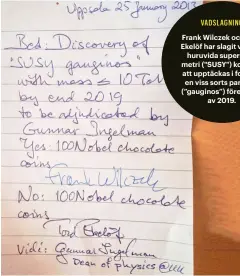 Uppsala 25 January 2013
Bed: Discovery of
"SUSY gauginos"
with mass ≤ 10 TeV
by end 2019
to be adjudicated by
Gunnar Ingelman
Yes: 100 Nobel chocolate
coins
Frank Wilczek
No: 100 Nobel chocolate
coins
Tord Ekelöf
Vidi: Gunnar Ingelman
Dean of physics @UU
VADSLAGNIN
Frank Wilczek oc
Ekelöf har slagit v
huruvida super
metri ("SUSY") ko
att upptäckas i fo
en viss sorts par
("gauginos") före
av 2019.